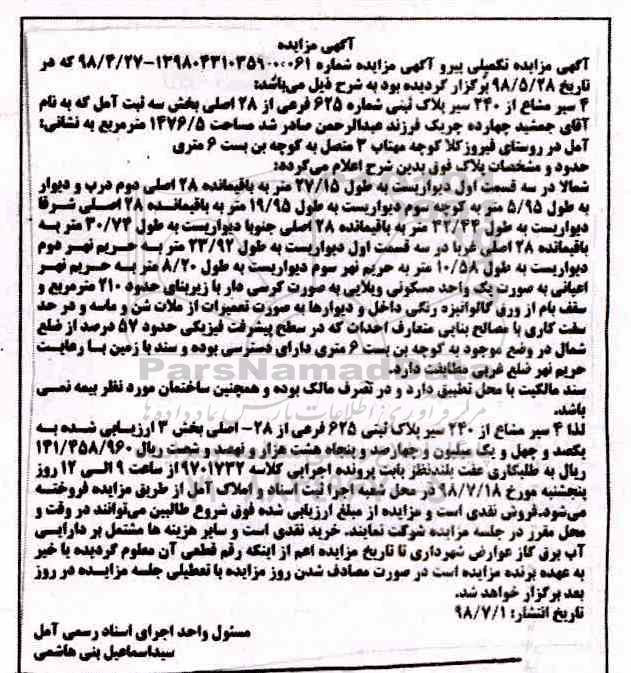 آگهی مزایده
آگهی مزایده تکمیلی پیرو آگهی مزایده شماره ۱۳۹۸۰۴۳۱۰۳۵۹۰۰۰۰۶۱-۹۸/۴/۲۷ که در
تاریخ ۹۸/۵/۲۸ برگزار گردیده بود به شرح ذیل می‌باشد:
۴ سیر مشاع از ۲۴۰ سیر پلاک ثبتی شماره ۶۲۵ فرعی از ۲۸ اصلی بخش سه ثبت آمل که به نام
آقای جمشید چهارده چریک فرزند عبدالرحمن صادر شد مساحت ۱۴۷۶/۵ مترمربع به نشانی:
آمل در روستای فیروزکلا کوچه مهتاب ۳ متصل به کوچه بن بست ۶ متری
حدود و مشخصات پلاک فوق بدین شرح اعلام می‌گردد:
شمالا در سه قسمت اول دیواریست به طول ۲۷/۱۵ متر به باقیمانده ۲۸ اصلی دوم درب و دیوار
به طول ۵/۹۵ متر به کوچه سوم دیواریست به طول ۱۹/۹۵ متر به باقیمانده ۲۸ اصلی شرقا
دیواریست به طول ۴۲/۴۴ متر به باقیمانده ۲۸ اصلی جنوبا دیواریست به طول ۳۰/۷۴ متر به
باقیمانده ۲۸ اصلی غربا در سه قسمت اول دیواریست به طول ۲۳/۹۲ متر به حریم نهر دوم
دیواریست به طول ۱۰/۵۸ متر به حریم نهر سوم دیواریست به طول ۸/۲۰ متر به حریم نهر
اعیانی به صورت یک واحد مسکونی ویلایی به صورت کرسی دار با زیربنای حدود ۲۱۰ مترمربع و
سقف بام از ورق گالوانیزه رنگی داخل و دیوارها به صورت تعمیرات از ملات شن و ماسه و در حد
سفت کاری با مصالح بنایی متعارف احداث که در سطح پیشرفت فیزیکی حدود ۵۷ درصد از ضلع
شمال در وضع موجود به کوچه بن بست ۶ متری دارای دسترسی بوده و سند با زمین با رعایت
حریم نهر ضلع غربی مطابقت دارد.
سند مالکیت با محل تطبیق دارد و در تصرف مالک بوده و همچنین ساختمان مورد نظر بیمه نمی
باشد.
لذا ۴ سیر مشاع از ۲۴۰ سیر پلاک ثبتی ۶۲۵ فرعی از ۲۸- اصلی بخش ۳ ارزیابی شده به
یکصد و چهل و یک میلیون و چهارصد و پنجاه هشت هزار و نهصد و شصت ریال ۱۴۱/۴۵۸/۹۶۰
ریال به طلبکاری عفت بلندنظر بابت پرونده اجرایی کلاسه ۹۷۰۱۷۳۲ از ساعت ۹ الی ۱۲ روز
پنجشنبه مورخ ۹۸/۷/۱۸ در محل شعبه اجرا ثبت اسناد و املاک آمل از طریق مزایده فروخته
می‌شود.فروش نقدی است و مزایده از مبلغ ارزیابی شده فوق شروع طالبین می‌توانند در وقت و
محل مقرر در جلسه مزایده شرکت نمایند. خرید نقدی است و سایر هزینه ها مشتمل بر دارایی
آب برق گاز عوارض شهرداری تا تاریخ مزایده اعم از اینکه رقم قطعی آن معلوم گردیده یا خیر
به عهده برنده مزایده است در صورت مصادف شدن روز مزایده با تعطیلی جلسه مزایده در روز
بعد برگزار خواهد شد.
تاریخ انتشار: ۹۸/۷/۱
مسئول واحد اجرای اسناد رسمی آمل
سیداسماعیل بنی هاشمی
ParsNamadData